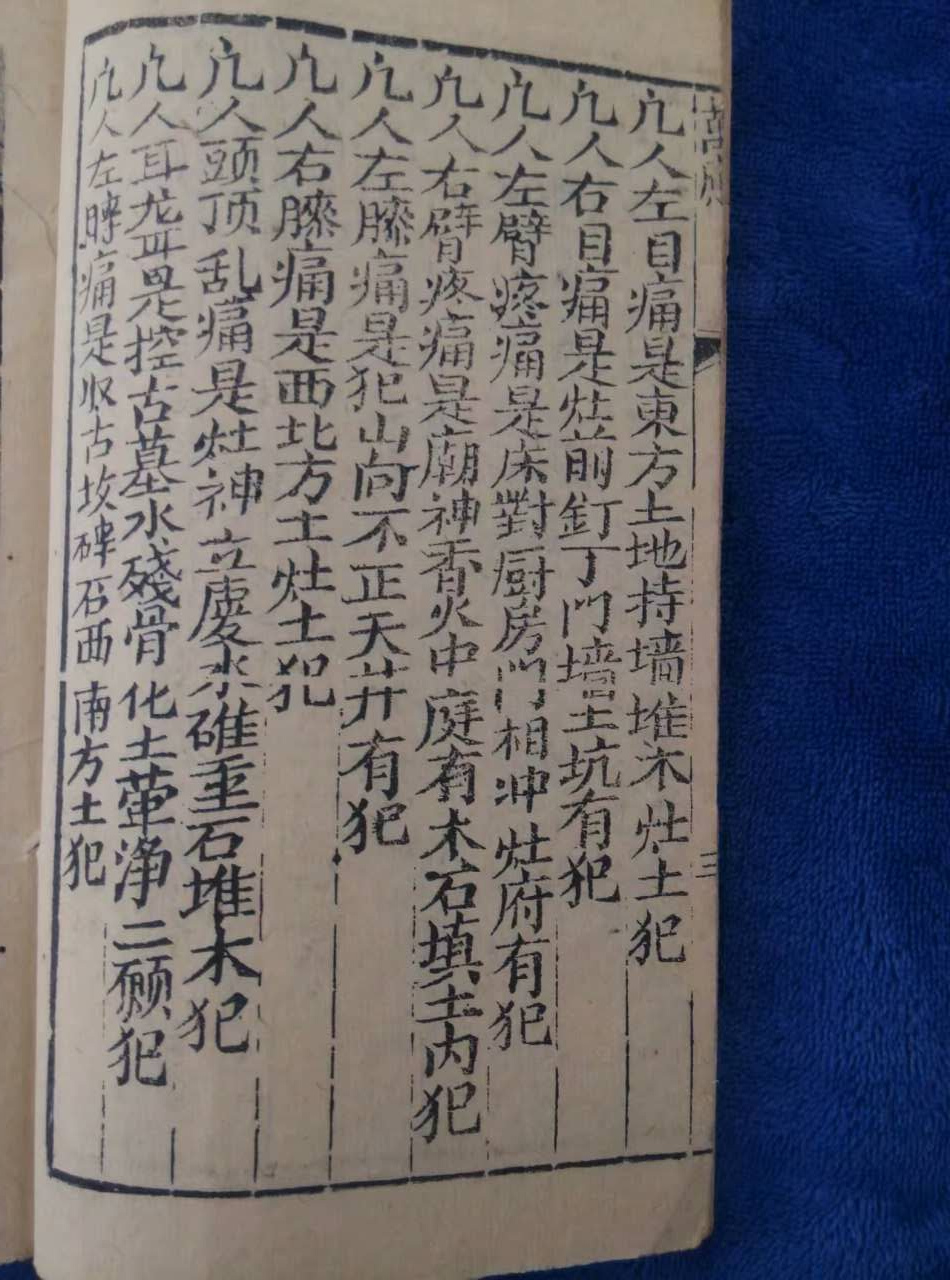 三
凢人左目痛是東方土地持墙堆木灶土犯
凢人右目痛是灶前釘丁門墙土坑有犯
凢人左臂疼痛是床對厨房門相冲灶府有犯
凢人右臂疼痛是廟神香火中庭有木石填土内犯
凢人左膝痛是犯山向不正天井有犯
凢人右膝痛是西北方土灶土犯
凢人頭顶乱痛是灶神立處水碓重石堆木犯
凢人耳龙耳是控古墓水殘骨化土葷净二願犯
凢人左痛是収古坟碑石西南方土犯